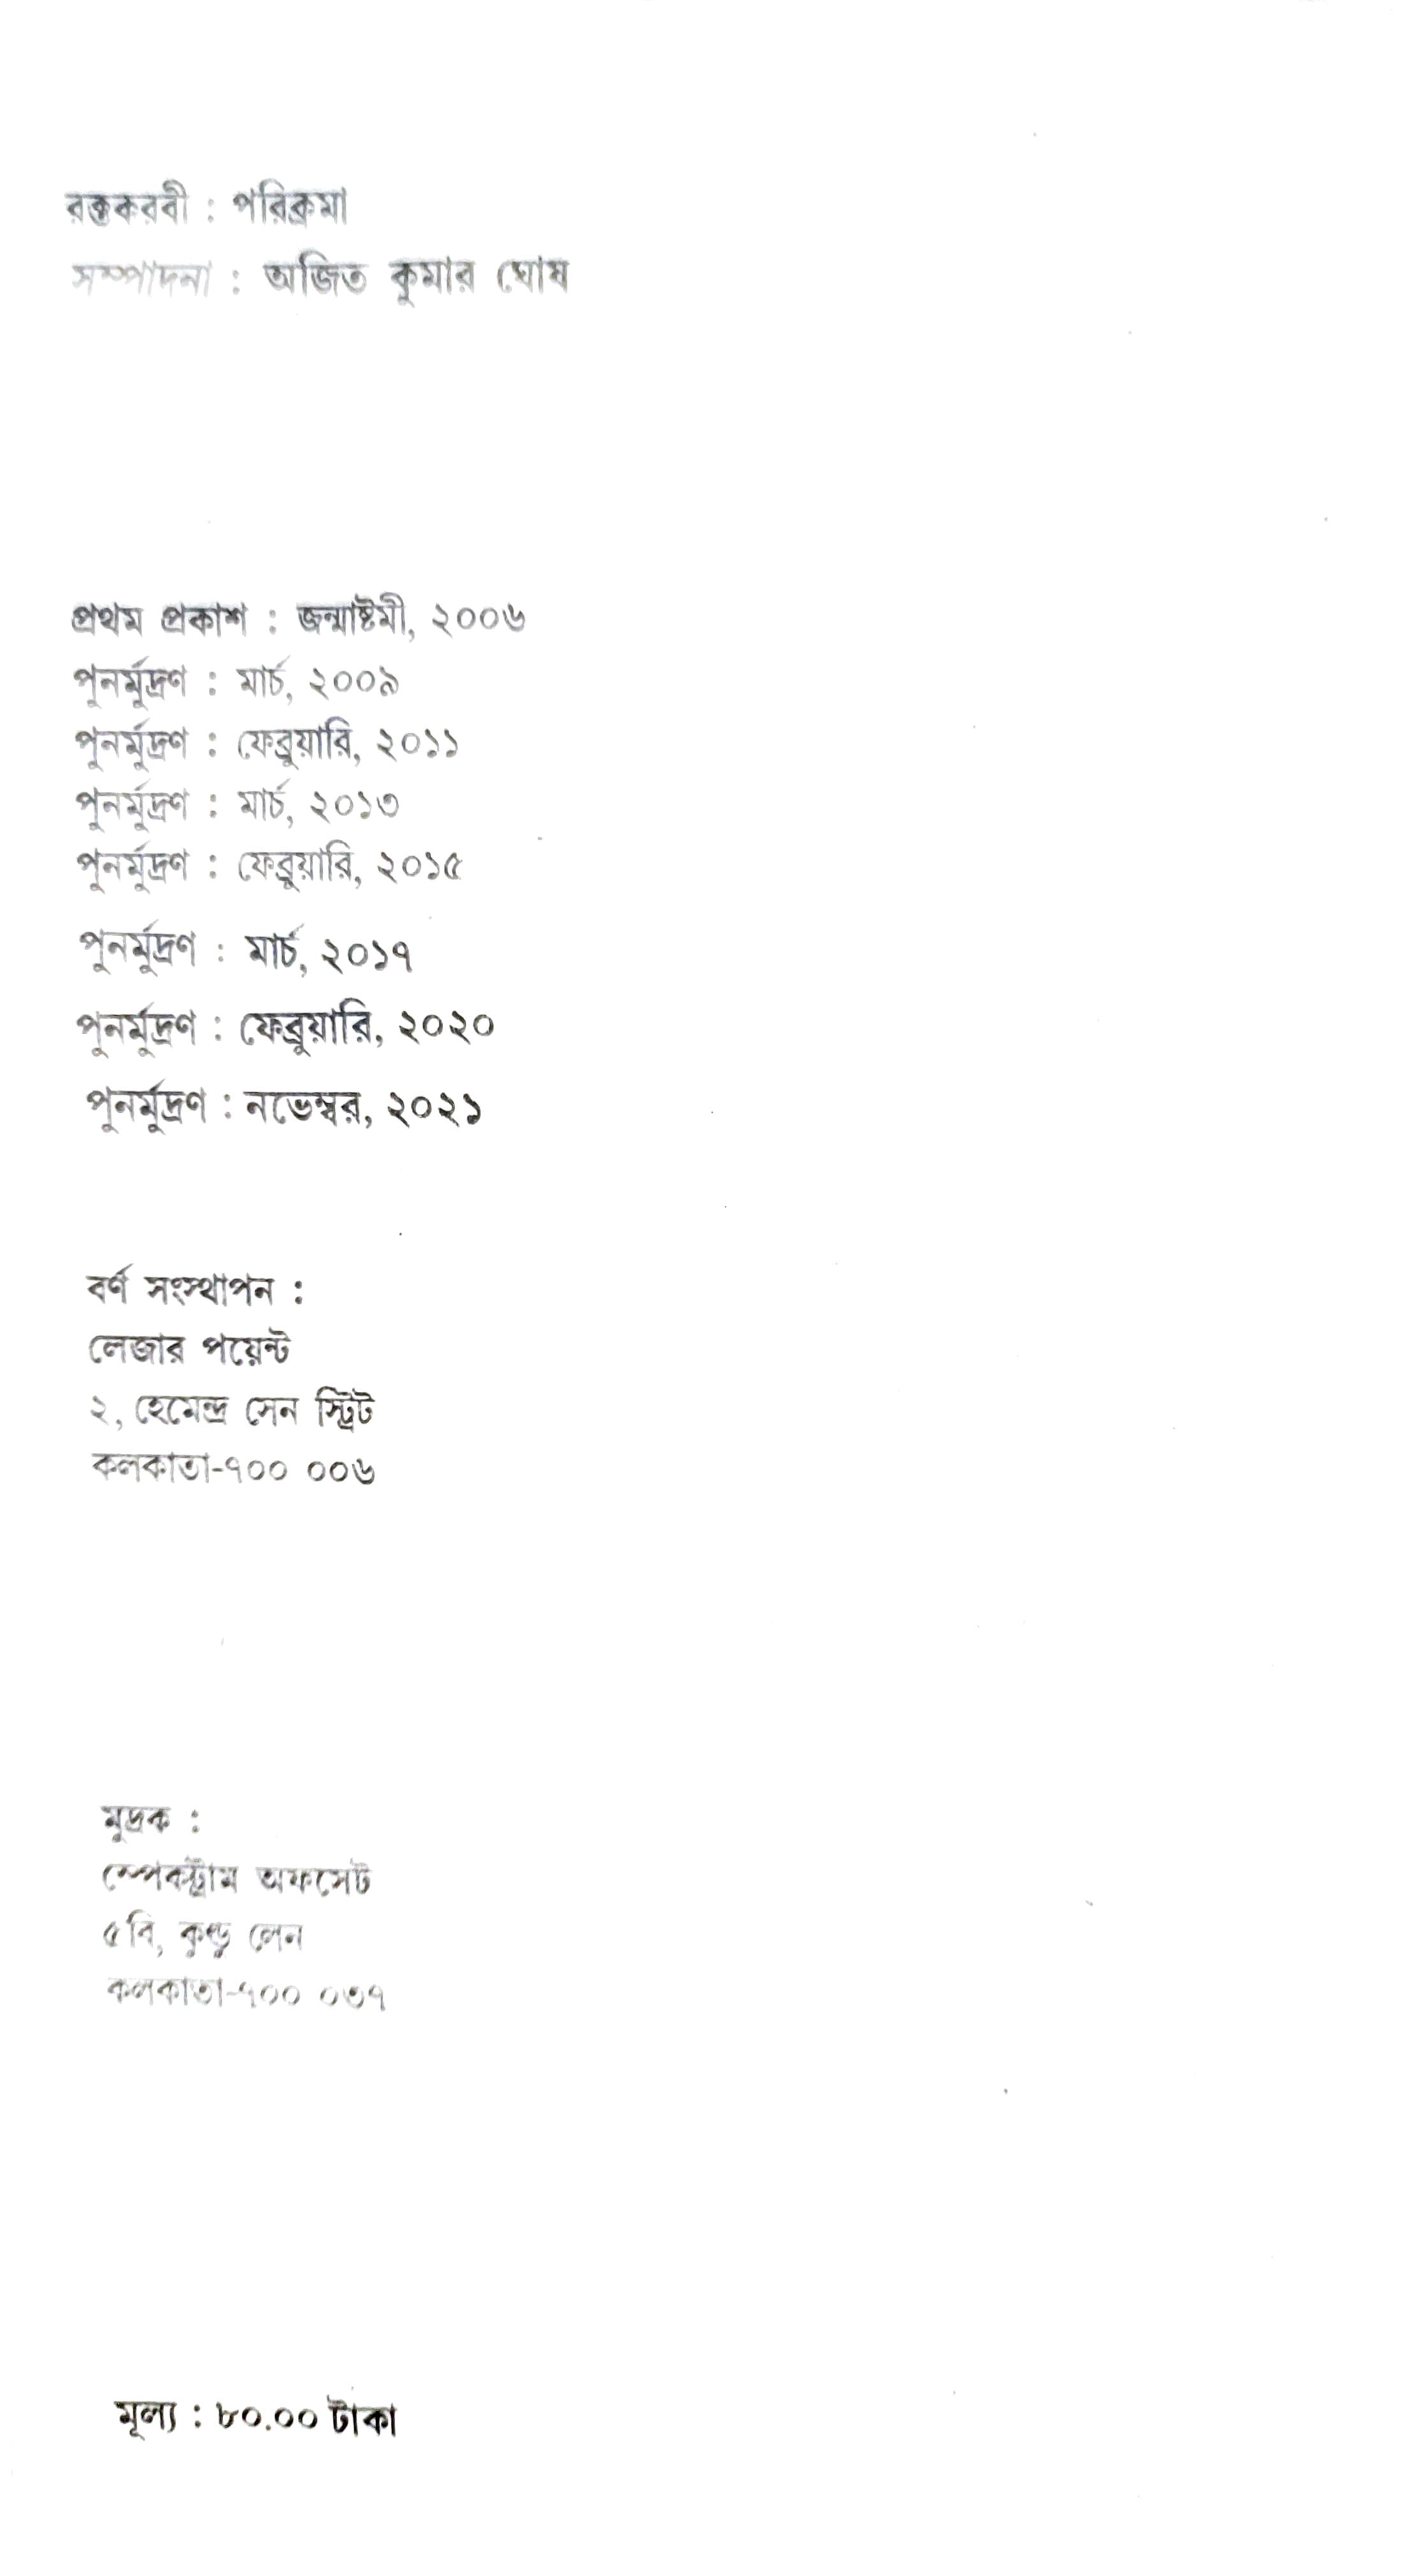 রক্তকরবী : পরিক্রমা
সম্পাদনা : অজিত কুমার ঘোষ
প্রথম প্রকাশ : জন্মাষ্টমী, ২০০৬
পুনর্মুদ্রণ : মার্চ, ২০০৯
পুনর্মুদ্রণ : ফেব্রুয়ারি, ২০১১
পুনর্মুদ্রণ : মার্চ, ২০১৩
পুনর্মুদ্রণ : ফেব্রুয়ারি, ২০১৫
পুনর্মুদ্রণ : মার্চ, ২০১৭
পুনর্মুদ্রণ : ফেব্রুয়ারি, ২০২০
পুনর্মুদ্রণ : নভেম্বর, ২০২১
বর্ণ সংস্থাপন :
লেজার পয়েন্ট
২, হেমেন্দ্র সেন স্ট্রিট
কলকাতা-৭০০ ০০৬
মুদ্রক :
স্পেকট্রাম অফসেট
৫বি, কুণ্ডু লেন
কলকাতা-৭০০ ০৩৭
মূল্য : ৮০.০০ টাকা